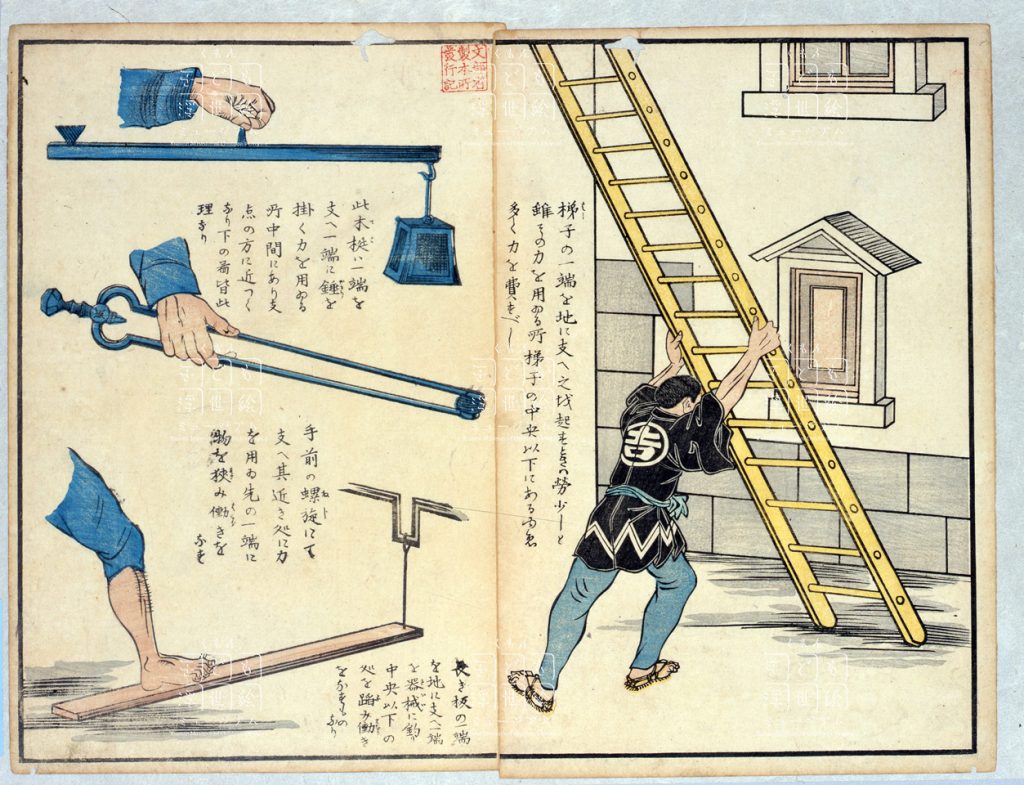 文部省
製本所
發行記
梯子の一端を地に支へ之を起すときハ勞少しと
雖その力を用ゐる所梯子の中央以下にある
多く力を費すべし
此木梃ハ一端を
支へ一端に錘を
掛く力を用ゐる
所中間にあり支
点の方に近づく
なり下の図皆此
理なり
手前の螺旋にて
支へ其近き処に力
を用ゐ先の一端に
物を狹み働きを
なす
長き板の一端
を地に支へ一端
を器械に釣り
中央以下の
処を踏み働き
をなすもの
なり